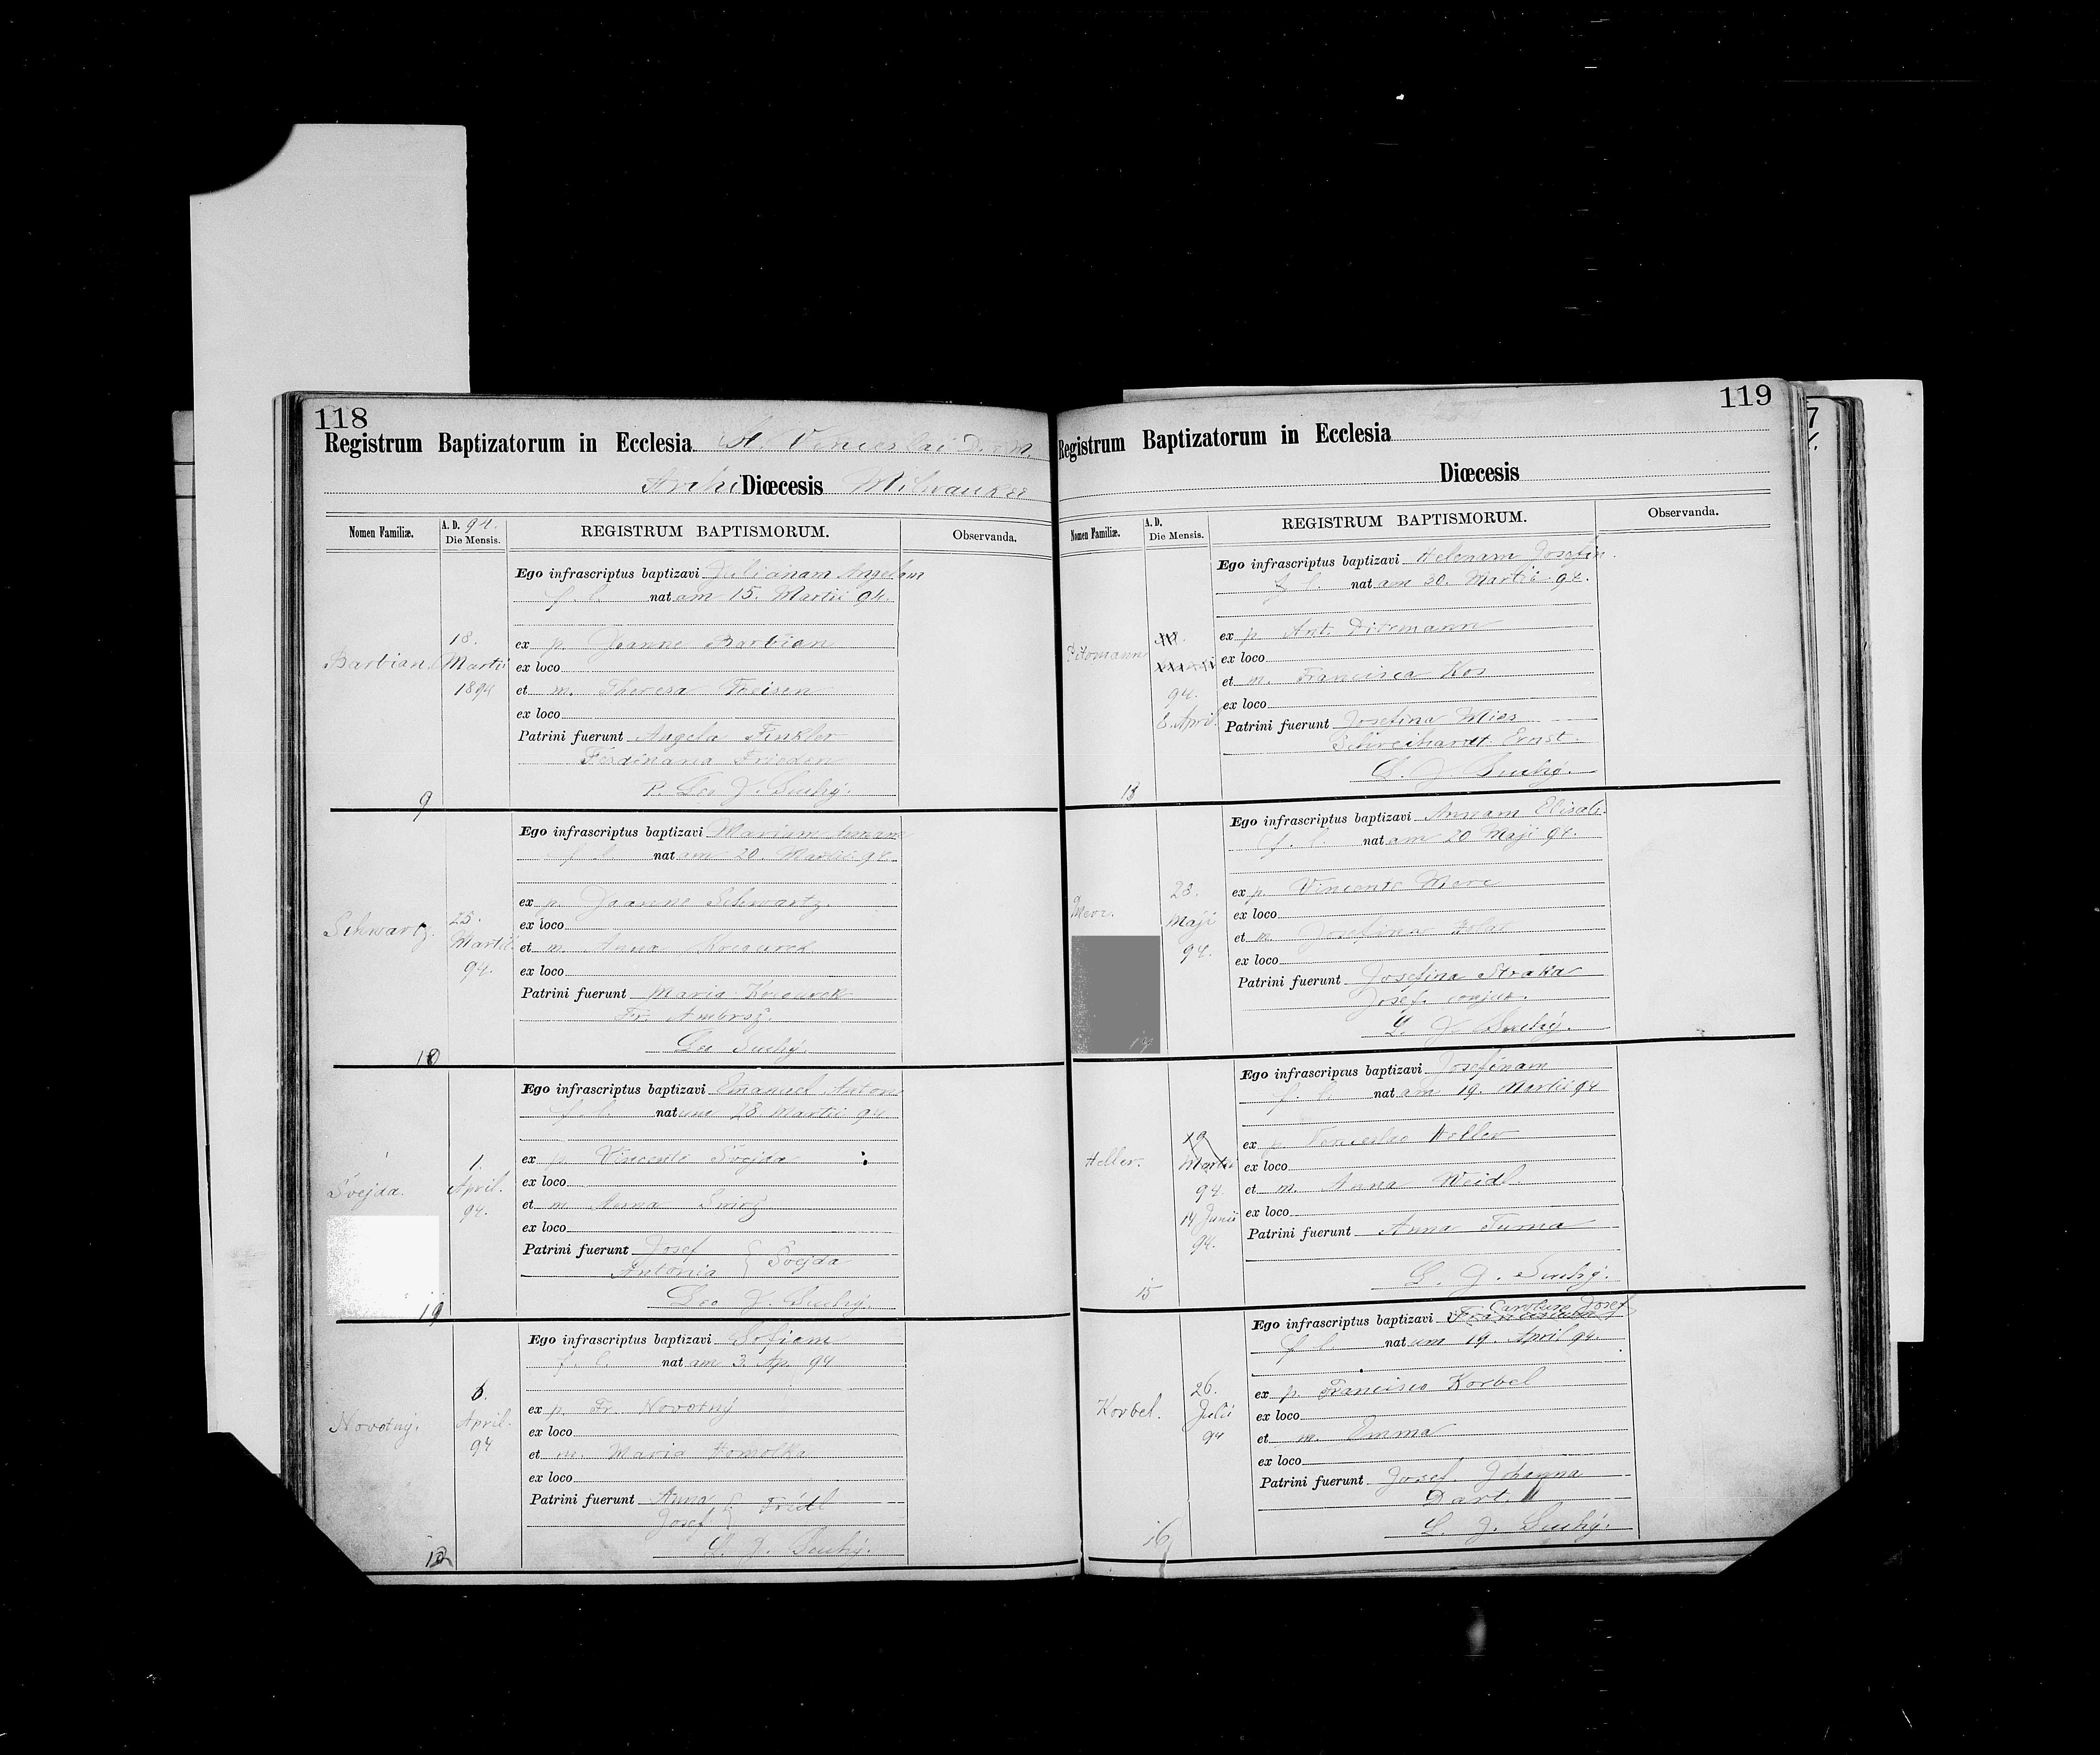 118
Registrum Baptizatorum in Ecclesia St. Venceslai D. & M.
Archi Diœcesis Milwaukee
Nomen Familiæ.
A. D. 94.
Die Mensis.
REGISTRUM BAPTISMORUM.
Observanda.
Barbian.
18.
Martii
1894
Ego infrascriptus baptizavi Julianam Angelam
f. l. nat am 15. Martii 94.
ex p. Joanne Barbian
ex loco
et m. Theresa Theisen
ex loco
Patrini fuerunt Angela Finkler
Ferdinand Frieden
P. Leo J. Suchý.
9
Schwartz.
25.
Martii
94.
Ego infrascriptus baptizavi Mariam Annam
f. l. nat am 20. Martii 94.
ex p. Joanne Schwartz.
ex loco
et m. Anna
ex loco
Patrini fuerunt Maria
Fr. Ambrož.
Leo Suchý.
10
Švejda.
1.
April.
94.
Ego infrascriptus baptizavi Emanuel Anton
f. l. nat um 28. Martii 94
ex p. Vincente Švejda
ex loco
et m. Anna
ex loco
Patrini fuerunt Josef
Antonia } Švejda
Leo J. Suchý.
Novotný.
6.
April.
94
Ego infrascriptus baptizavi Sofiam
f. l. nat am 3. Ap. 94
ex p. Fr. Novotný
ex loco
et m. Maria Homolka
ex loco
Patrini fuerunt Anna
Josef }
L. J. Suchý.
12
119
Registrum Baptizatorum in Ecclesia
Diœcesis
Nomen Familiæ.
A. D.
Die Mensis.
REGISTRUM BAPTISMORUM.
Observanda.
94.
8. April
Ego infrascriptus baptizavi Helenam Josefin.
f. l. nat am 20. Martii 94.
ex p. Ant.
ex loco
et m. Francisca Kos
ex loco
Patrini fuerunt Josefina Mies
Ernst.
L. J. Suchý.
13
Merc.
23.
Maji
94.
Ego infrascriptus baptizavi Annam Elisab.
f. l. nat am 20 Maji 94.
ex p. Vincente Merc
ex loco
et m. Josefina
ex loco
Patrini fuerunt Josefina Straka
Josef. conjux.
L. J. Suchý.
14
Heller.
19
Martii
94.
14 Junii
94.
Ego infrascriptus baptizavi Josefinam
f. l. nat am 19. Martii 94
ex p. Venceslao Heller
ex loco
et m. Anna Weidl
ex loco
Patrini fuerunt Anna Tuma
L. J. Suchý.
15
Korbel.
26.
Julii
94
Carolum Josef
Ego infrascriptus baptizavi Franciscum
f. l. nat um 19. April 94.
ex p. Francisco Korbel
ex loco
et m. Emma
ex loco
Patrini fuerunt Josef. Johanna
Bart.
L. J. Suchý.
16